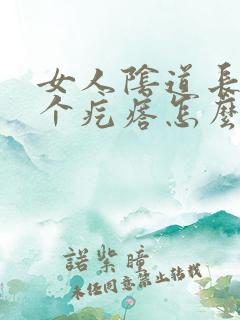 女人陰道長
个疙瘩怎麼
諾紫瞳
未经同意禁止转载